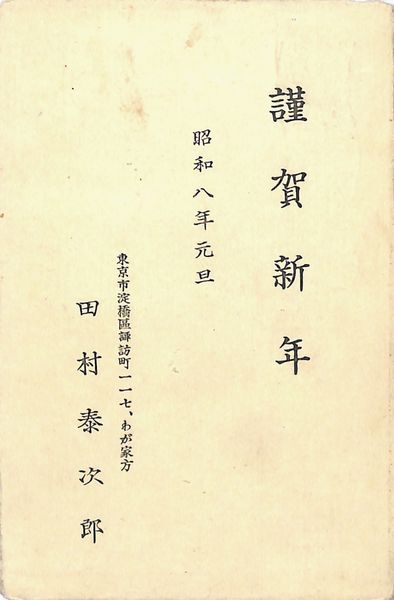 謹賀新年
昭和八年元旦
東京市淀橋區諏訪町一一七、わが家方
田村泰次郎